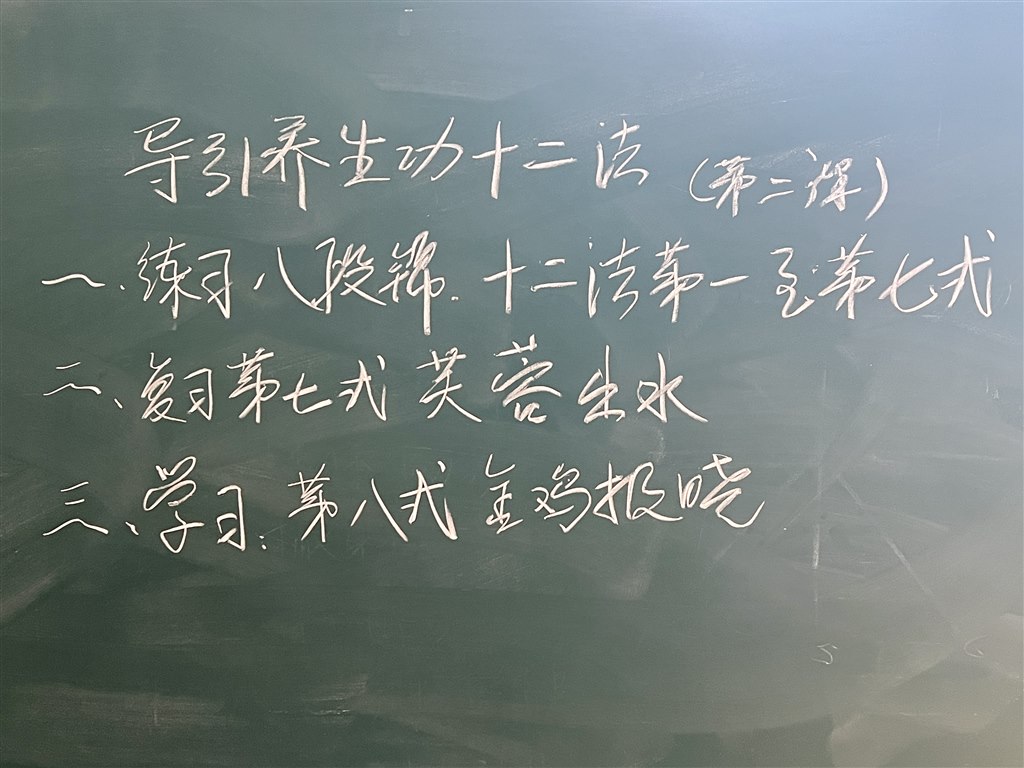 导引养生功十二法 (第二课)
一、练习八段锦.十二法第一至第七式
二、复习第七式 芙蓉出水
三、学习:第八式 金鸡报晓